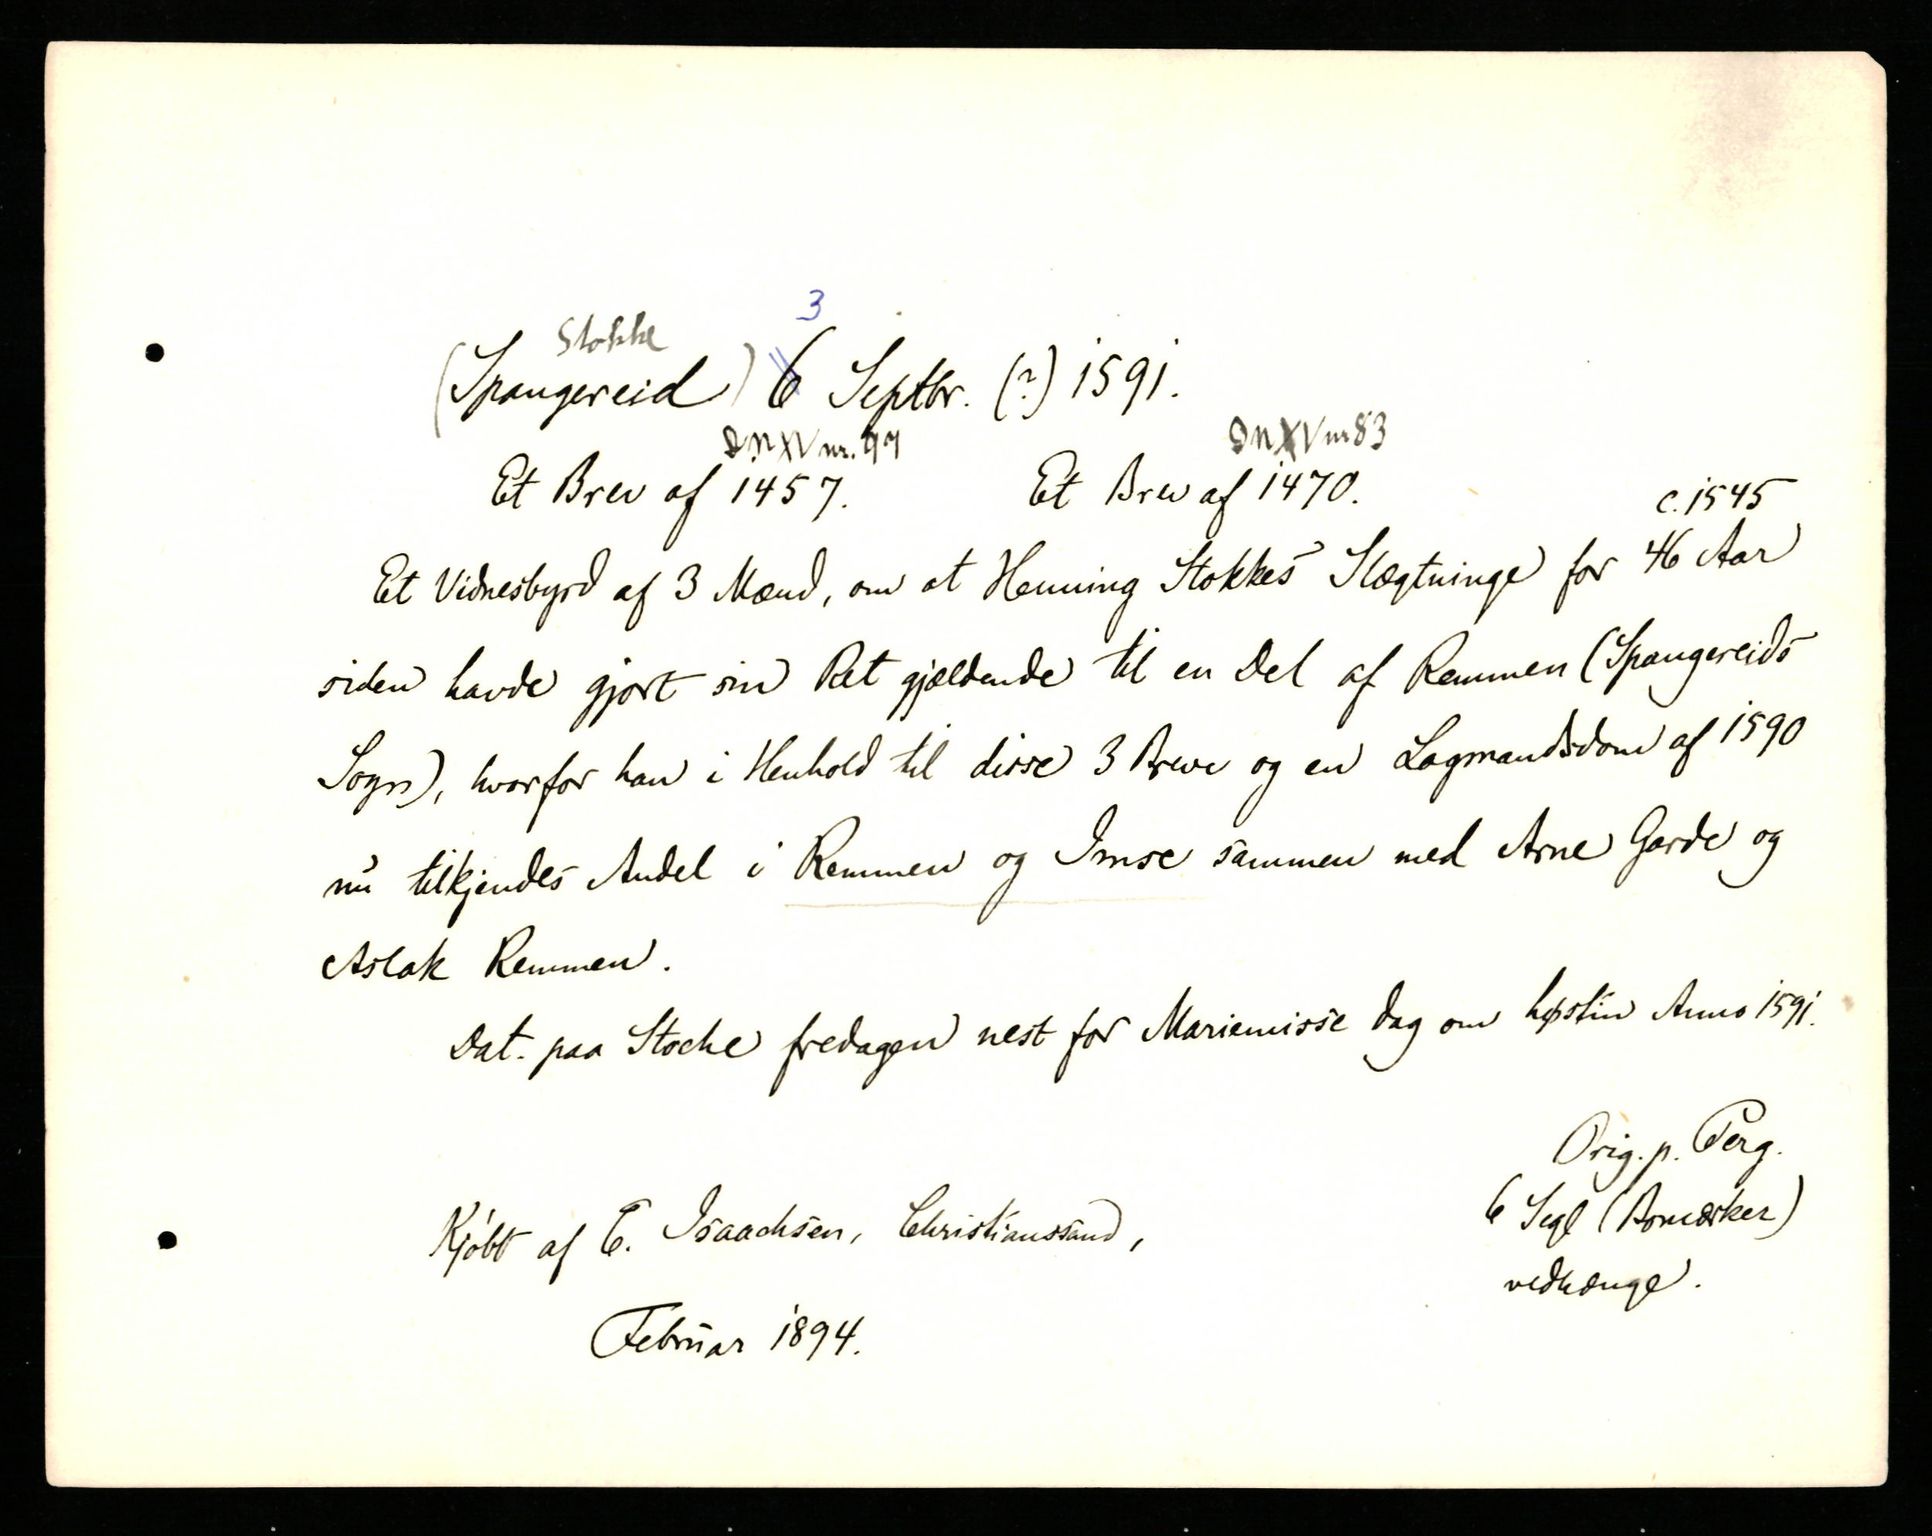 3
Stokke
(Spangereid) 6 Septbr. (?) 1591.
DN XV nr. 97 DN XV nr 83
Et Brev af 1457. Et Brev af 1470.
c. 1545
Et Vidnesbyrd af 3 Mænd, om at Henning Stokkes Slægtninge for 46 Aar
siden havde gjort sin Ret gjældende til en Del af Remmen (Spangereids
Sogn), hvorfor han i Henhold til disse 3 Breve og en Lagmandsdom af 1590
nu tilkjendes Andel i Remmen og Imse sammen med Arne Garde og
Aslak Remmen.
Dat. paa Stocke fredagen nest for Mariemisse dag om høstin Anno 1591.
Orig. p. Perg.
6 Segl (Bomærker)
vedhænge.
Kjöbt af E. Isaachsen, Christianssand,
Februar 1894.